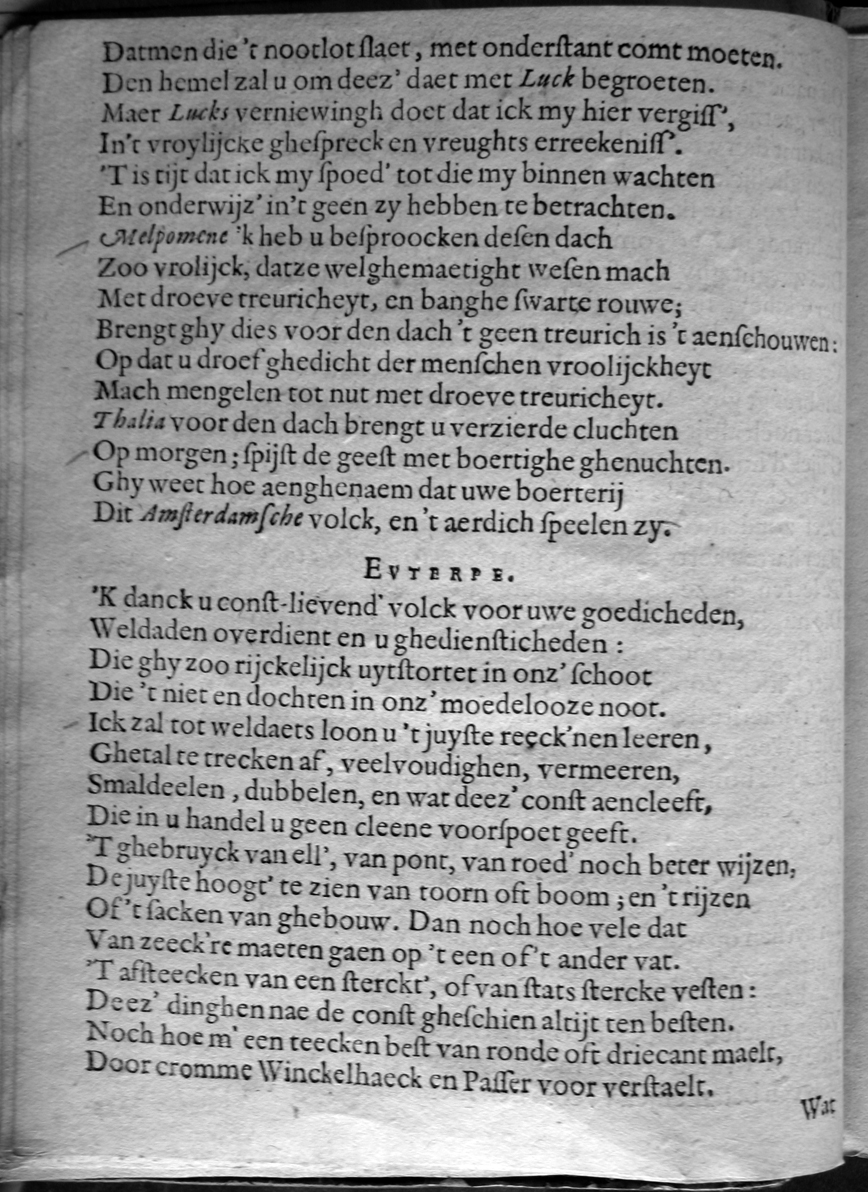 Datmen die 't nootlot slaet, met onderstant comt moeten.
Den hemel zal u om deez' daet met Luck begroeten.
Maer Lucks verniewingh doet dat ick my hier vergiss',
In't vroylijcke ghespreck en vreughts erreekeniss'.
'T is tijt dat ick my spoed' tot die my binnen wachten
En onderwijz' in't geen zy hebben te betrachten.
Melpomene 'k heb u besproocken desen dach
Zoo vrolijck, datze welghemaetight wesen mach
Met droeve treuricheyt, en banghe swarte rouwe;
Brengt ghy dies voor den dach 't geen treurich is 't aenschouwen:
Op dat u droef ghedicht der menschen vroolijckheyt
Mach mengelen tot nut met droeve treuricheyt.
Thalia voor den dach brengt u verzierde cluchten
Op morgen; spijst de geest met boertighe ghenuchten.
Ghy weet hoe aenghenaem dat uwe boerterij
Dit Amsterdamsche volck, en 't aerdich speelen zy.
EVTERPE.
'K danck u const-lievend' volck voor uwe goedicheden,
Weldaden overdient en u ghediensticheden :
Die ghy zoo rijckelijck uytstortet in onz' schoot
Die 't niet en dochten in onz' moedelooze noot.
Ick zal tot weldaets loon u 't juyste reeck'nen leeren,
Ghetal te trecken af, veelvoudighen, vermeeren,
Smaldeelen, dubbelen, en wat deez' const aencleeft,
Die in u handel u geen cleene voorspoet geeft.
'T ghebruyck van ell', van pont, van roed' noch beter wijzen,
De juyste hoogt' te zien van toorn oft boom; en 't rijzen
Of 't sacken van ghebouw. Dan noch hoe vele dat
Van zeeck're maeten gaen op 't een of 't ander vat.
'T afsteecken van een sterckt', of van stats stercke vesten :
Deez' dinghen nae de const gheschien altijt ten besten.
Noch hoe m' een teecken best van ronde oft driecant maelt,
Door cromme Winckelhaeck en Passer voor verstaelt.
Wat